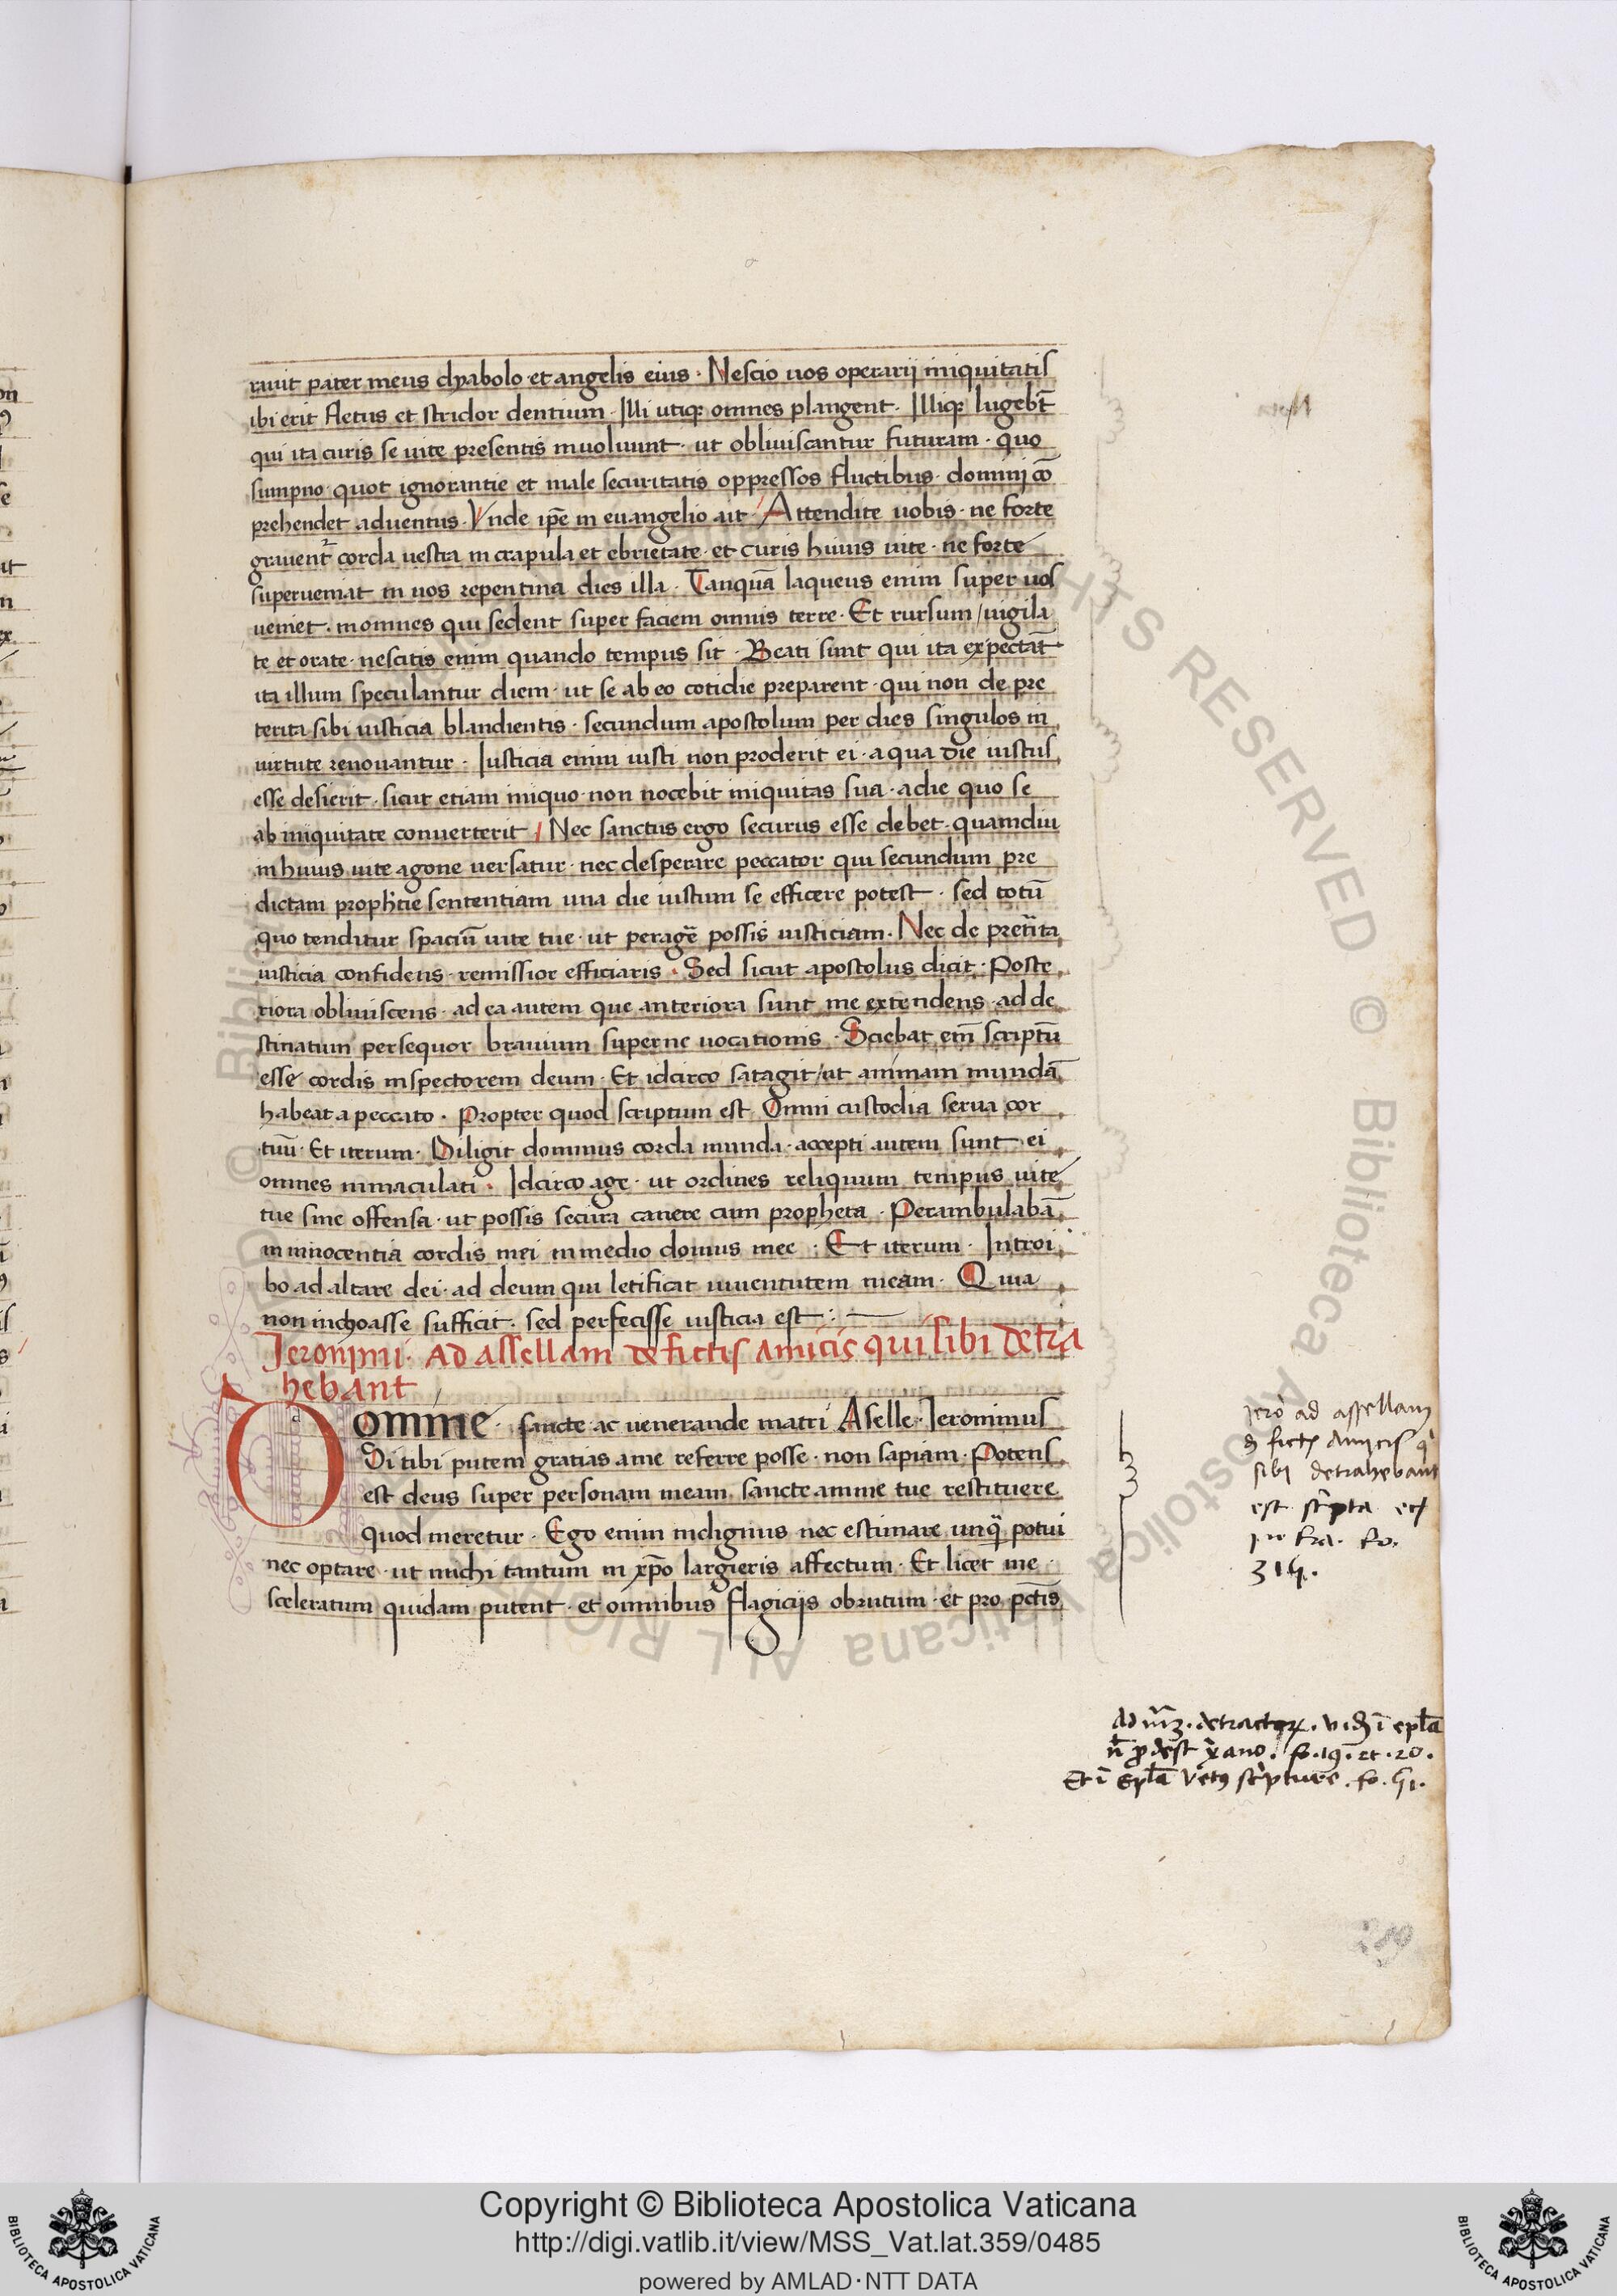 rauit pater meus dyabolo · et angelis eius · Nescio uos operarij iniquitatis
ibi erit fletus et stridor dentium · Illi utiqꝫ omnes plangent · Illiqꝫ lugebt̄
qui ita curis se uite presentis inuoluunt · ut obliuiscantur futuram · quo
sumpno · quot ignorantie et male securitatis oppressos fluctibus · domini cō
prehendet aduentus · Vnde ip̄e in euangelio ait · Attendite uobis · ne forte
grauent᷑ corda uestra in crapula et ebrietate · et curis huius uite · ne forte
superueniat in uos repentina dies illa · Tanquā laqueus enim super uos
ueniet · in omnes qui sedent super faciem omnis terre · Et rursum / uigila
te et orate · nescitis enim quando tempus sit · Beati sunt qui ita expectāt
ita illum speculantur diem · ut se ab eo cotidie preparent · qui non de pre
terita sibi iusticia blandientis · secundum apostolum per dies singulos in
uirtute renouantur · Iusticia enim iusti non proderit ei · a qua die iustus
esse desierit · sicut etiam iniquo · non nocebit iniquitas sua · a die quo se
ab iniquitate conuerterit / Nec sanctus ergo securus esse debet · quamdiu
in huius uite agone uersatur · nec desperare peccator qui secundum pre
dictam prophē̄tie sententiam una die iustum se efficere potest · sed totū
quo tenditur spaciū uite tue · ut peragē possis iusticiam · Nec de pret̄ita
iusticia confidens · remissior efficiaris · Sed sicut apostolus dicit · Poste
riora obliuiscens · ad ea autem que anteriora sunt me extendens · ad de
stinatum persequor brauium superne uocationis · Sciebat em̄ scriptū
esse cordis inspectorem deum · Et idcirco satagit / ut animam mundā
habeat a peccato · Propter quod scriptum est Omni custodia serua cor
tuū · Et iterum · Diligit dominus corda munda · accepti autem sunt ei
omnes inmaculati · Idcirco age · ut ordines reliquum tempus uite
tue sine offensa · ut possis secura canere cum propheta · Perambulabā
in innocentia cordis mei in medio domus mee · Et iterum · Introi
bo ad altare dei · ad deum qui letificat iuuentutem meam · Quia
non inchoasse sufficit · sed perfecisse iusticia est :
Jeronimi · Ad assellam de fictis amicis qui sibi detra
hebant
Domine · sancte ac uenerande matri Aselle · Ieronimus
Si tibi putem gratias a me referre posse · non sapiam · Potens
est deus super personam meam sancte anime tue restituere
quod meretur · Ego enim indignus nec estimare unq̄ potui
nec optare · ut michi tantum in xp̄o largieris affectum · Et licet me
sceleratum quidam putent · et omnibus flagicijs obrutum · et pro pctīs
Jero ad assellam
d fictꝭ Amicis q
sibi detrahebant
est scripta etꝭ
infra. fo.
314.
Ad detractoꝝ. epl̄a
fo. 19. et. 20.
Et ī Epl̄a scripture. fo.
Copyright © Biblioteca Apostolica Vaticana
http://digi.vatlib.it/view/MSS_Vat.lat.359/0485
powered by AMLAD·NTT DATA
BIBLIOTECA APOSTOLICA VATICANA
BIBLIOTECA APOSTOLICA VATICANA
© Biblioteca Apostolica Vaticana ALL RIGHTS RESERVED